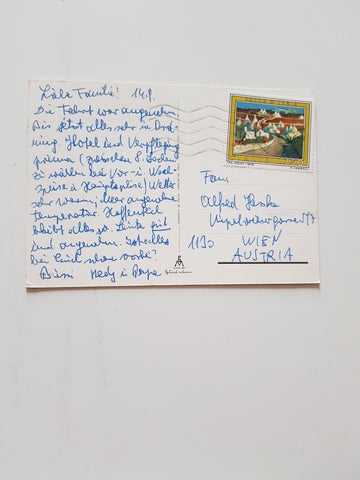 Liebe Familie! 14.9.
Die Fahrt war angenehm.
Bis jetzt alles sehr in Ord-
nung. Hotel und Verpflegung
prima (zwischen 8 Sachen
zu wählen bei Vor- u. Nach-
speise u. Hauptspeise) Wetter
sehr warm, Meer angenehme
temperatur. Hoffentlich
bleibt alles so. Leute gut
und angenehm. Ist alles
bei Euch schon vorbei?
Bussi Hedy u.
Fam.
Alfred
1190 WIEN
AUSTRIA